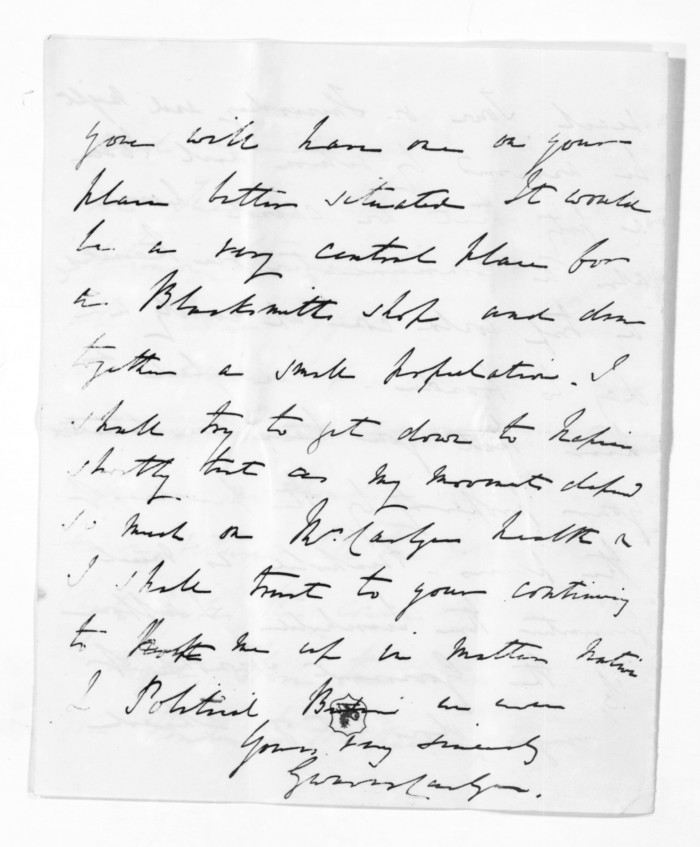 you will have one on your
place better situated It would
be a very central place for
a Blacksmiths shop and draw
together a small population. I
shall try to get down to Napier
shortly but as my movements depend
so much on Mrs. Carlyon health &
I shall trust to your continuing
to me up in matters Native
& Political Believe me ever
Yours very sincerely
Carlyon.